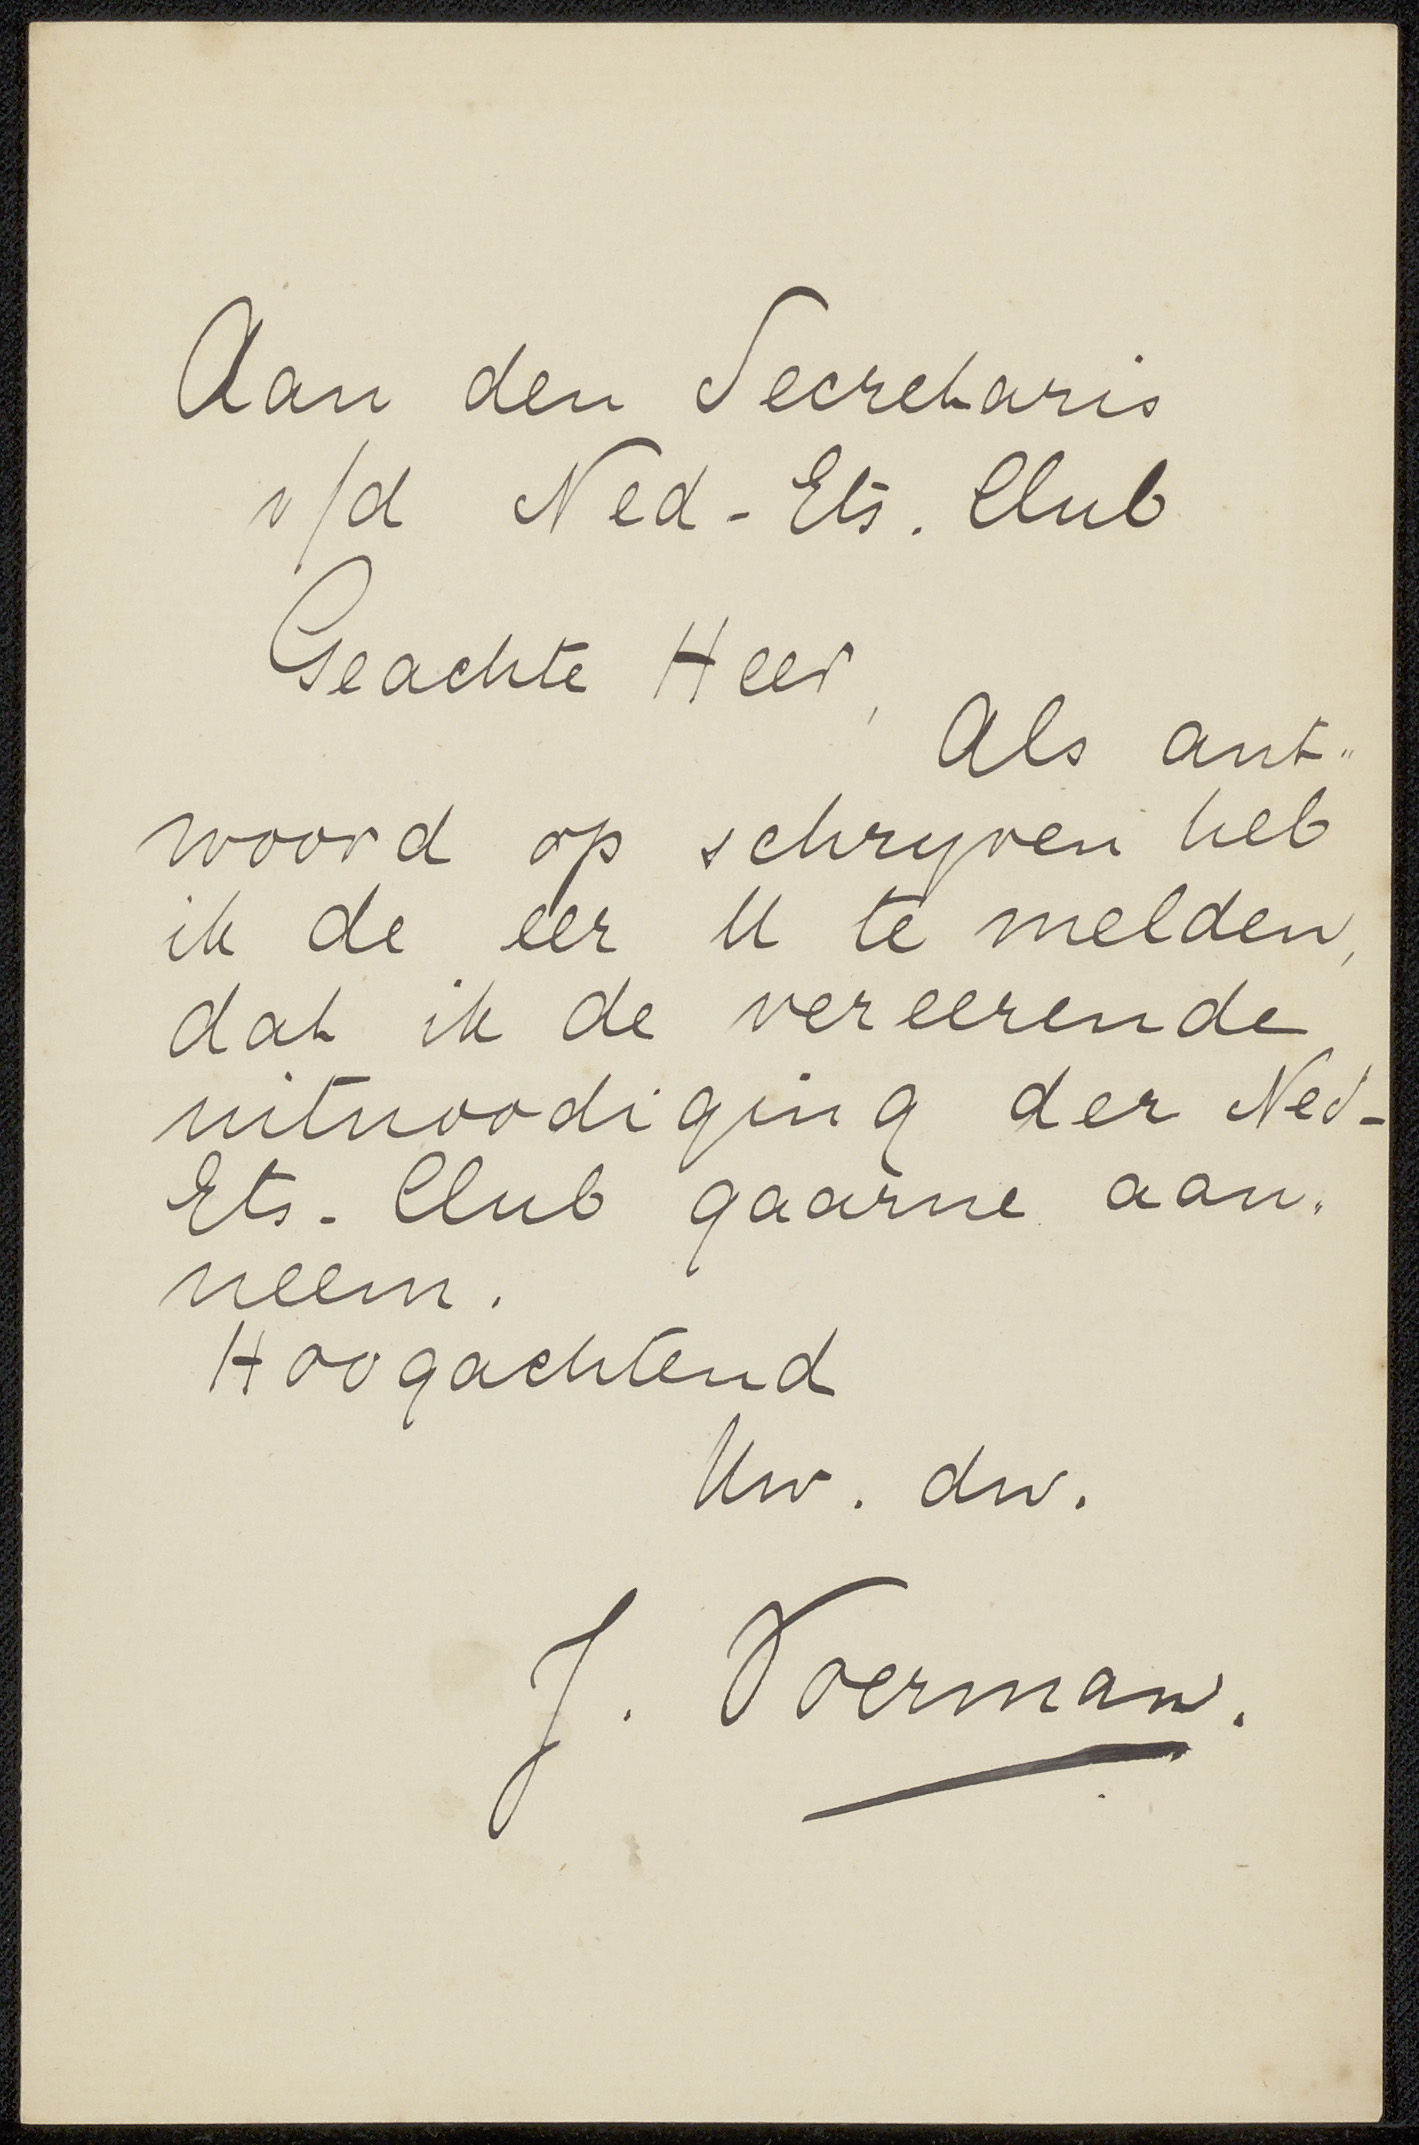 Aan den Secretaris
v/d Ned - Ets. Club
Geachte Heer,
Als ant-
woord op schryven heb
ik de eer U te melden,
dat ik de vereerende
uitnoodiging der Ned-
Ets. Club gaarne aan-
neem.
Hoogachtend
Uw. dw.
J. Voerman.